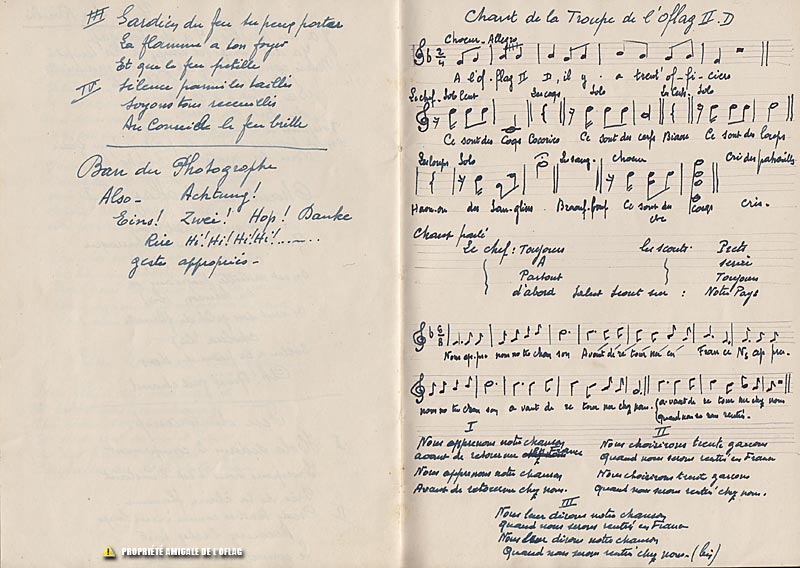 III Gardien du feu tu peux porter
La flamme à ton foyer
Et que le feu pétille
IV Silence parmi les taillis
Soyons tous recueillis
Au Corniche le feu brille
Ban du Photographe
Also - Achtung!
Eins! Zwei! Hop! Danke
Rire Hi! Hi! Hi! Hi! ......
geste approprié -
Chant de la Troupe de l'oflag II.D
Choeur - Allegro
A l'of-flag II D, il y a trent' of-fi-ciers
Le chef - Solo Lent Les coqs Solo Les cerfs Solo
Ce sont des Coqs Cocorico Ce sont des cerfs Ce sont des Loups
Les loups Solo Les sang. choeur Cri des patrouilles
des San-gliers Ce sont des Coqs Cris.
Chant parlé
Le chef : Toujours Les scouts : Prêts
A servir
Partout Toujours
d'abord Salut Scout sur : Notre Pays
Nous ap-pre nons no tre chan son Avant de re tour ner en Fran ce No ap pre.
nons no tre chan son a vant de re tour ner chez nous. a vant de re tour ner chez nous
quand nous se rons rentrés.
I
Nous apprenons notre chanson
avant de retourner en France
Nous apprenons notre chanson
Avant de retourner chez nous.
II
Nous choisirons trente garçons
Quand nous serons rentrés en France
Nous choisirons trent garçons
quand nous serons rentrés chez nous.
III
Nous leur dirons notre chanson
quand nous serons rentrés en France
Nous leur dirons notre chanson
Quand nous serons rentrés chez nous - (bis)
PROPRIÉTÉ AMICALE DE L'OFLAG